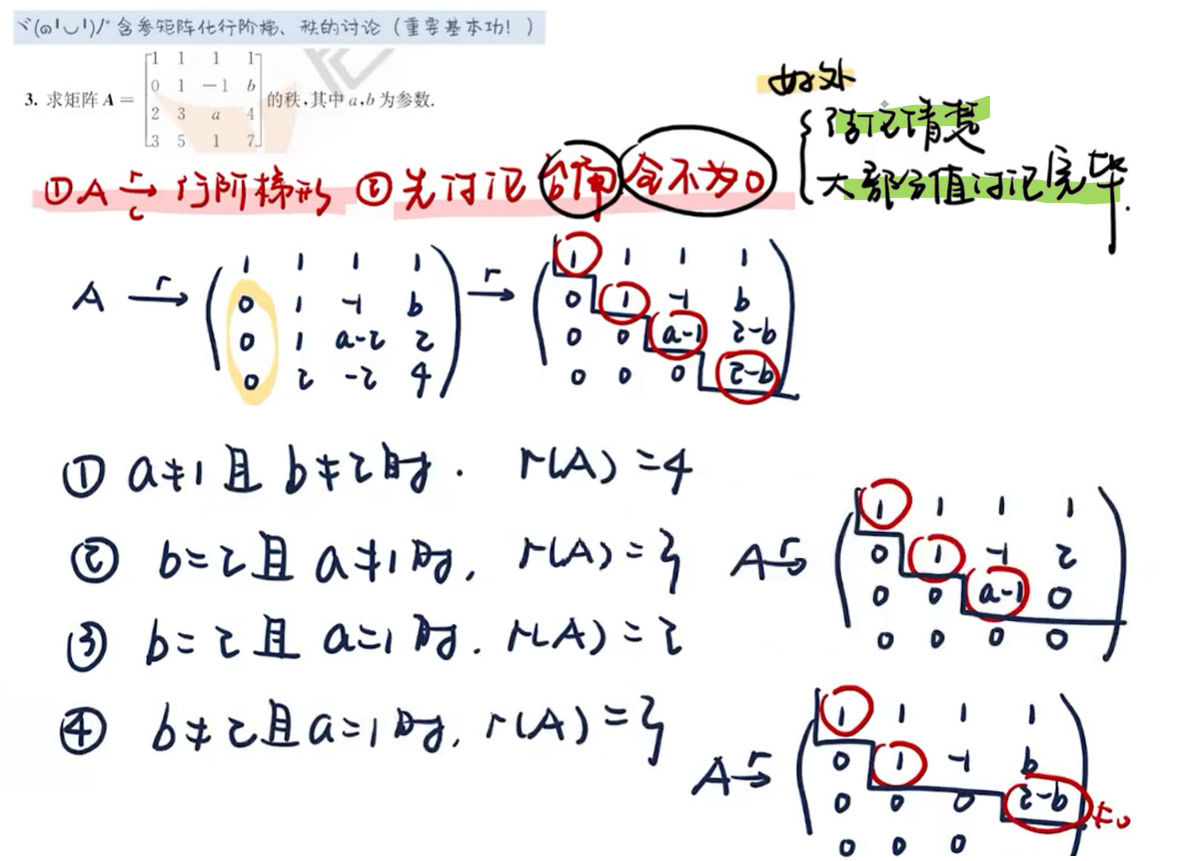 ヾ(๑╹◡╹)ﾉ" 含参矩阵化行阶梯、秩的讨论（重要基本功！）
3. 求矩阵 A = [1 1 1 1; 0 1 −1 b; 2 3 a 4; 3 5 1 7] 的秩,其中 a,b 为参数.
好处
{讨论清楚
大部分值讨论完毕.
①A r→ c 行阶梯形 ②先讨论 台角 全不为0
A r→ (1 1 1 1; 0 1 -1 b; 0 1 a-2 2; 0 2 -2 4) r→ (1 1 1 1; 0 1 -1 b; 0 0 a-1 2-b; 0 0 0 2-b)
① a≠1 且 b≠2 时. r(A)=4
② b=2 且 a≠1 时, r(A)=3
A r→ (1 1 1 1; 0 1 -1 2; 0 0 a-1 0; 0 0 0 0)
③ b=2 且 a=1 时. r(A)=2
④ b≠2 且 a=1 时, r(A)=3
A r→ (1 1 1 1; 0 1 -1 b; 0 0 0 2-b ≠0; 0 0 0